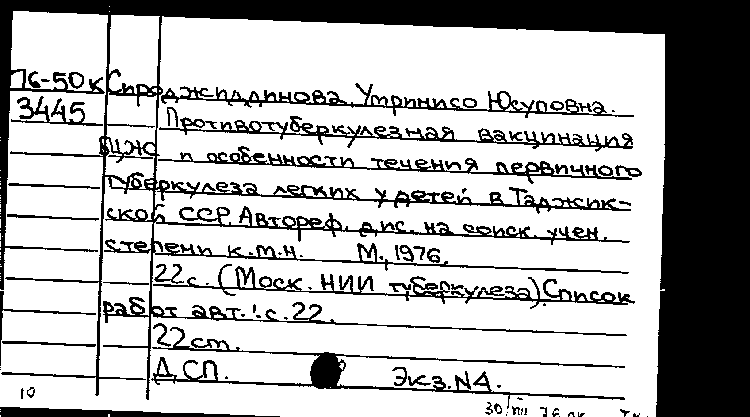 76-50к Сироджиддинова, Умринисо Юсуповна.
3445 Противотуберкулезная вакцинация
БЦЖ и особенности течения первичного
туберкулеза легких у детей в Таджик-
ской ССР. Автореф. дис. на соиск. учен.
степени к.м.н. М., 1976.
22с. (Моск. НИИ туберкулеза). Список
работ авт.: с. 22.
22 см.
Д.СП. Экз. N4.
10 30/VII 76